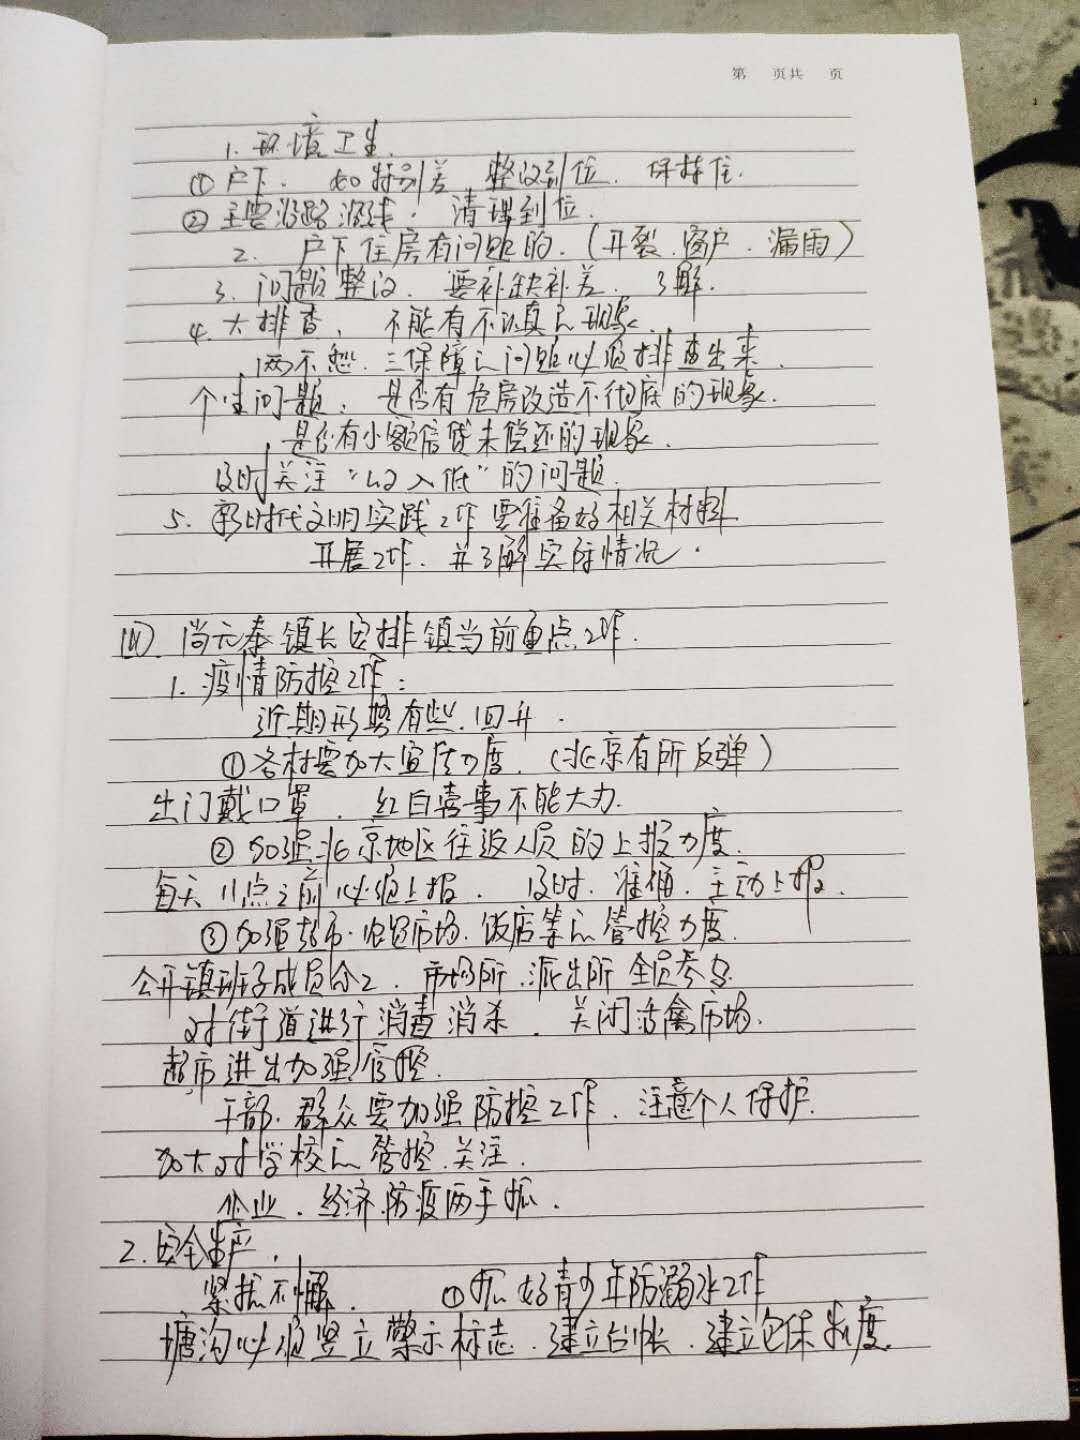 第 页共 页
1. 环境卫生.
① 户下. 如特别差 整改到位. 保持住.
② 主要沿路沿线. 清理到位.
2. 户下住房有问题的.(开裂.窗户.漏雨)
3. 问题整改. 要补缺补差. 了解.
4. 大排查, 不能有不认真的现象.
两不愁.三保障的问题必须排查出来.
个性问题, 是否有危房改造不彻底的现象.
是否有小额信贷未偿还的现象.
及时关注“收入低”的问题.
5. 新时代文明实践工作要准备好相关材料
开展工作. 并了解实际情况.
四. 尚元泰镇长安排镇当前重点工作.
1. 疫情防控工作:
近期形势有些回升.
① 各村要加大宣传力度.(北京有所反弹)
出门戴口罩. 红白喜事不能大办.
② 加强北京地区往返人员的上报力度.
每天11点之前必须上报. 及时.准确.主动上报.
③ 加强超市.农贸市场.饭店等的管控力度.
公开镇班子成员分工. 市场所.派出所全员参与.
对街道进行消毒消杀. 关闭活禽市场.
超市进出加强管控.
干部.群众要加强防控工作. 注意个人保护.
加大对学校的管控.关注.
企业.经济.防疫两手抓.
2. 安全生产.
紧抓不懈. ① 抓好青少年防溺水工作
塘沟必须竖立警示标志.建立台帐.建立包保制度.